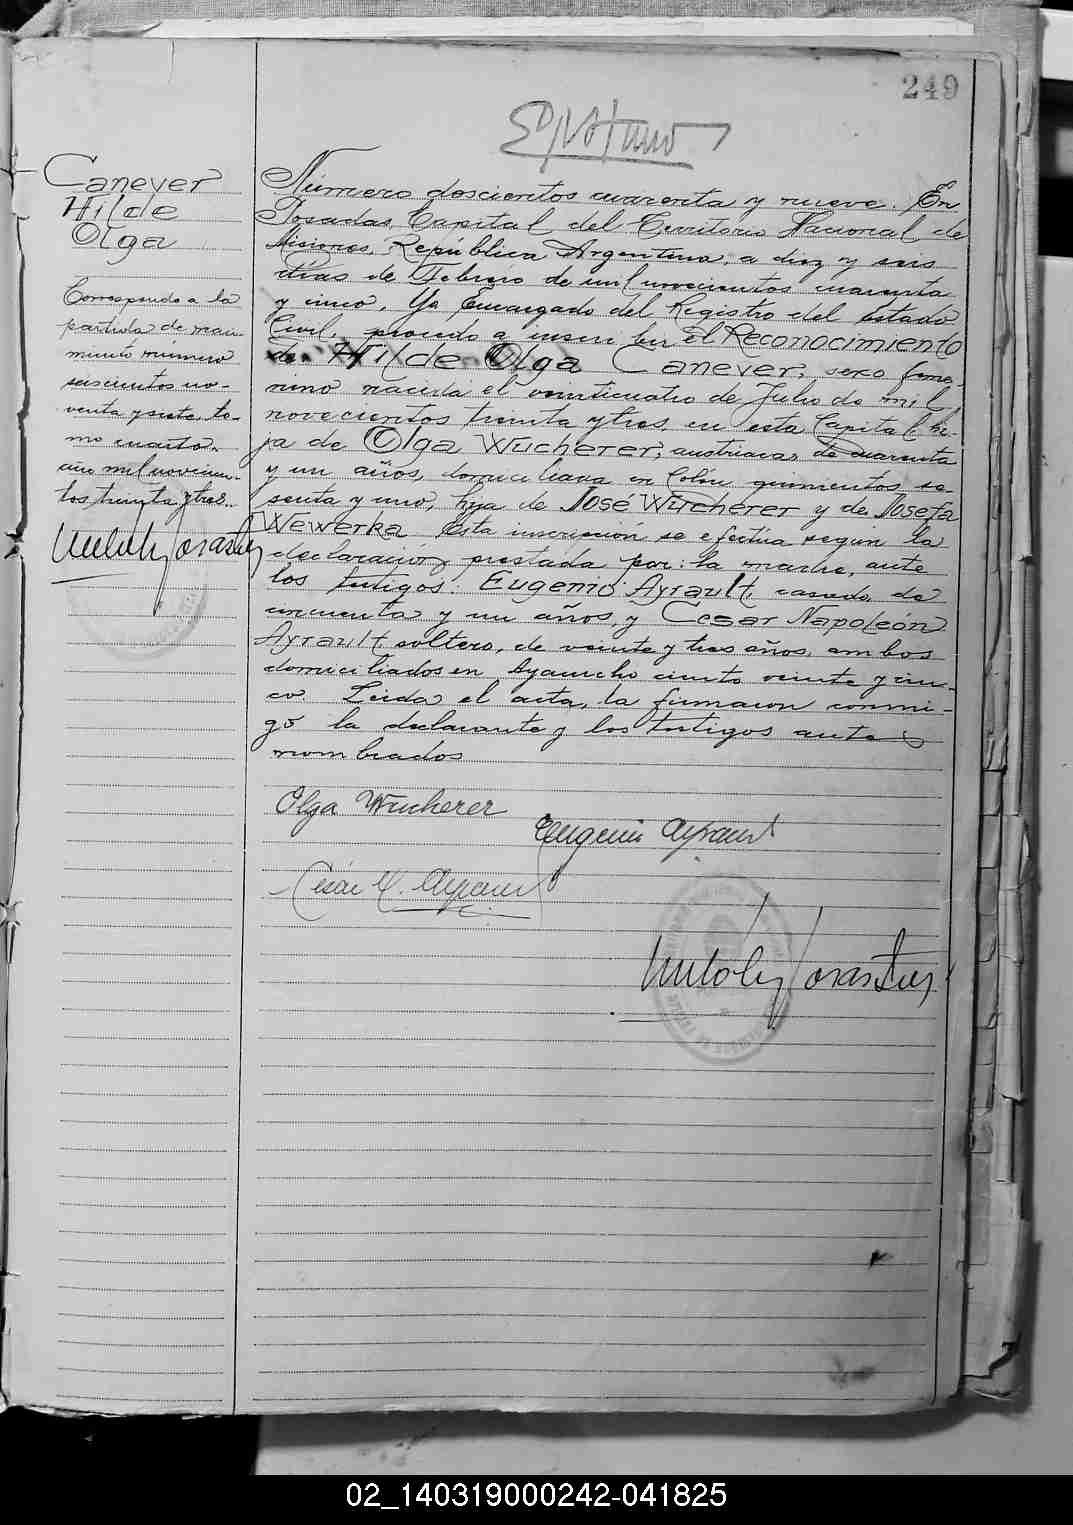 249
Canever
Hilde
Olga
Corresponde a la
partida de naci-
miento número
seiscientos no-
venta y siete to-
mo cuarto.
año mil novecien-
tos treinta y tres..
Número doscientos cuarenta y nueve. En
Posadas, Capital del Territorio Nacional de
Misiones, República Argentina, a diez y seis
días de Febrero de mil novecientos cuarenta
y cinco, Yo Encargado del Registro del Estado
Civil, procedo a inscribir el Reconocimiento
de Hilde Olga Canever, sexo feme-
nino nacida el veinticuatro de Julio de mil
novecientos treinta y tres, en esta Capital, hi-
ja de Olga Wucherer, austriaca, de cuarenta
y un años, domiciliada en Colón quinientos se-
senta y uno, hija de José Wucherer y de Josefa
Wewerka. Esta inscripción se efectúa según la
declaración prestada por: la madre, ante
los testigos: Eugenio Ayrault, casado, de
cincuenta y un años, y Cesar Napoleón
Ayrault, soltero, de veinte y tres años, ambos
domiciliados en Ayacucho ciento veinte y cin-
co. Leida el acta, la firmaron conmi-
go la declarante y los testigos ante
nombrados
Olga Wucherer
Eugenio Ayrault
César N. Ayrault
02_140319000242-041825